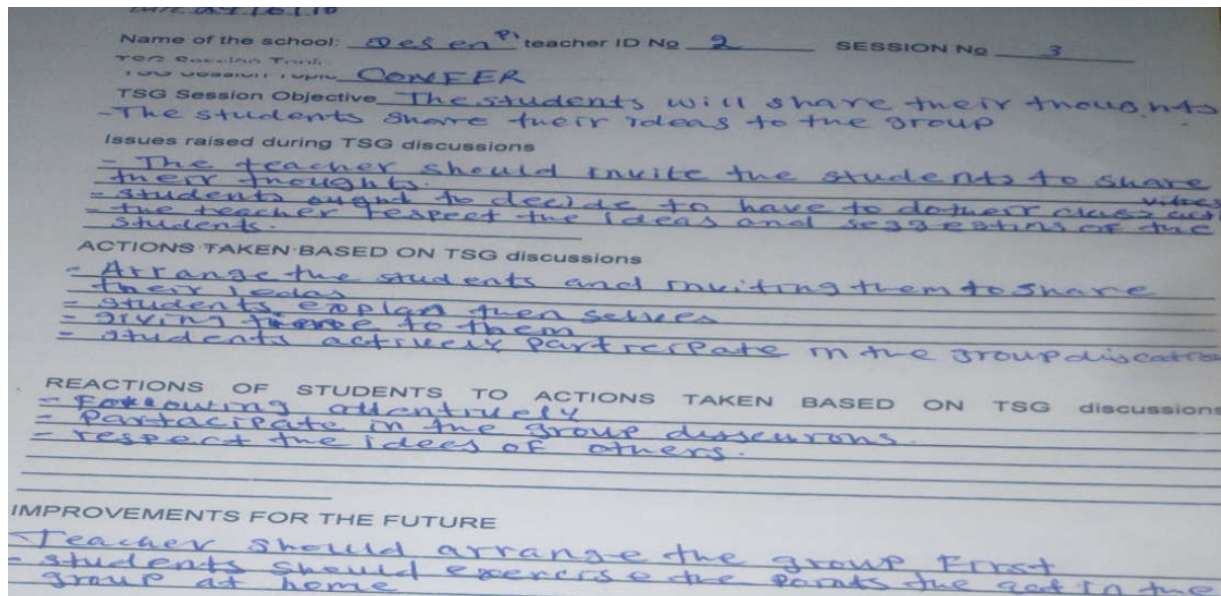 Name of the school: Desen Pi teacher ID No 2 SESSION No 3
TSG Session Topic CONFER
TSG Session Objective The students will share their thoughts
- The students share their ideas to the group
Issues raised during TSG discussions
- The teacher should invite the students to share
their thoughts.
- students ought to decide to have to do their class activities
- the teacher respect the ideas and seggestins of the
students.
ACTIONS TAKEN BASED ON TSG discussions
- Arrange the students and inviting them to share
their
- students explan then selves
- giving to them
- students actively participate in the group discation
REACTIONS OF STUDENTS TO ACTIONS TAKEN BASED ON TSG discussions
- Following attentively
- Partacipate in the group
- respect the idees of others.
IMPROVEMENTS FOR THE FUTURE
Teacher should arrange the group First
- students should exercise the points the get in the
group at home